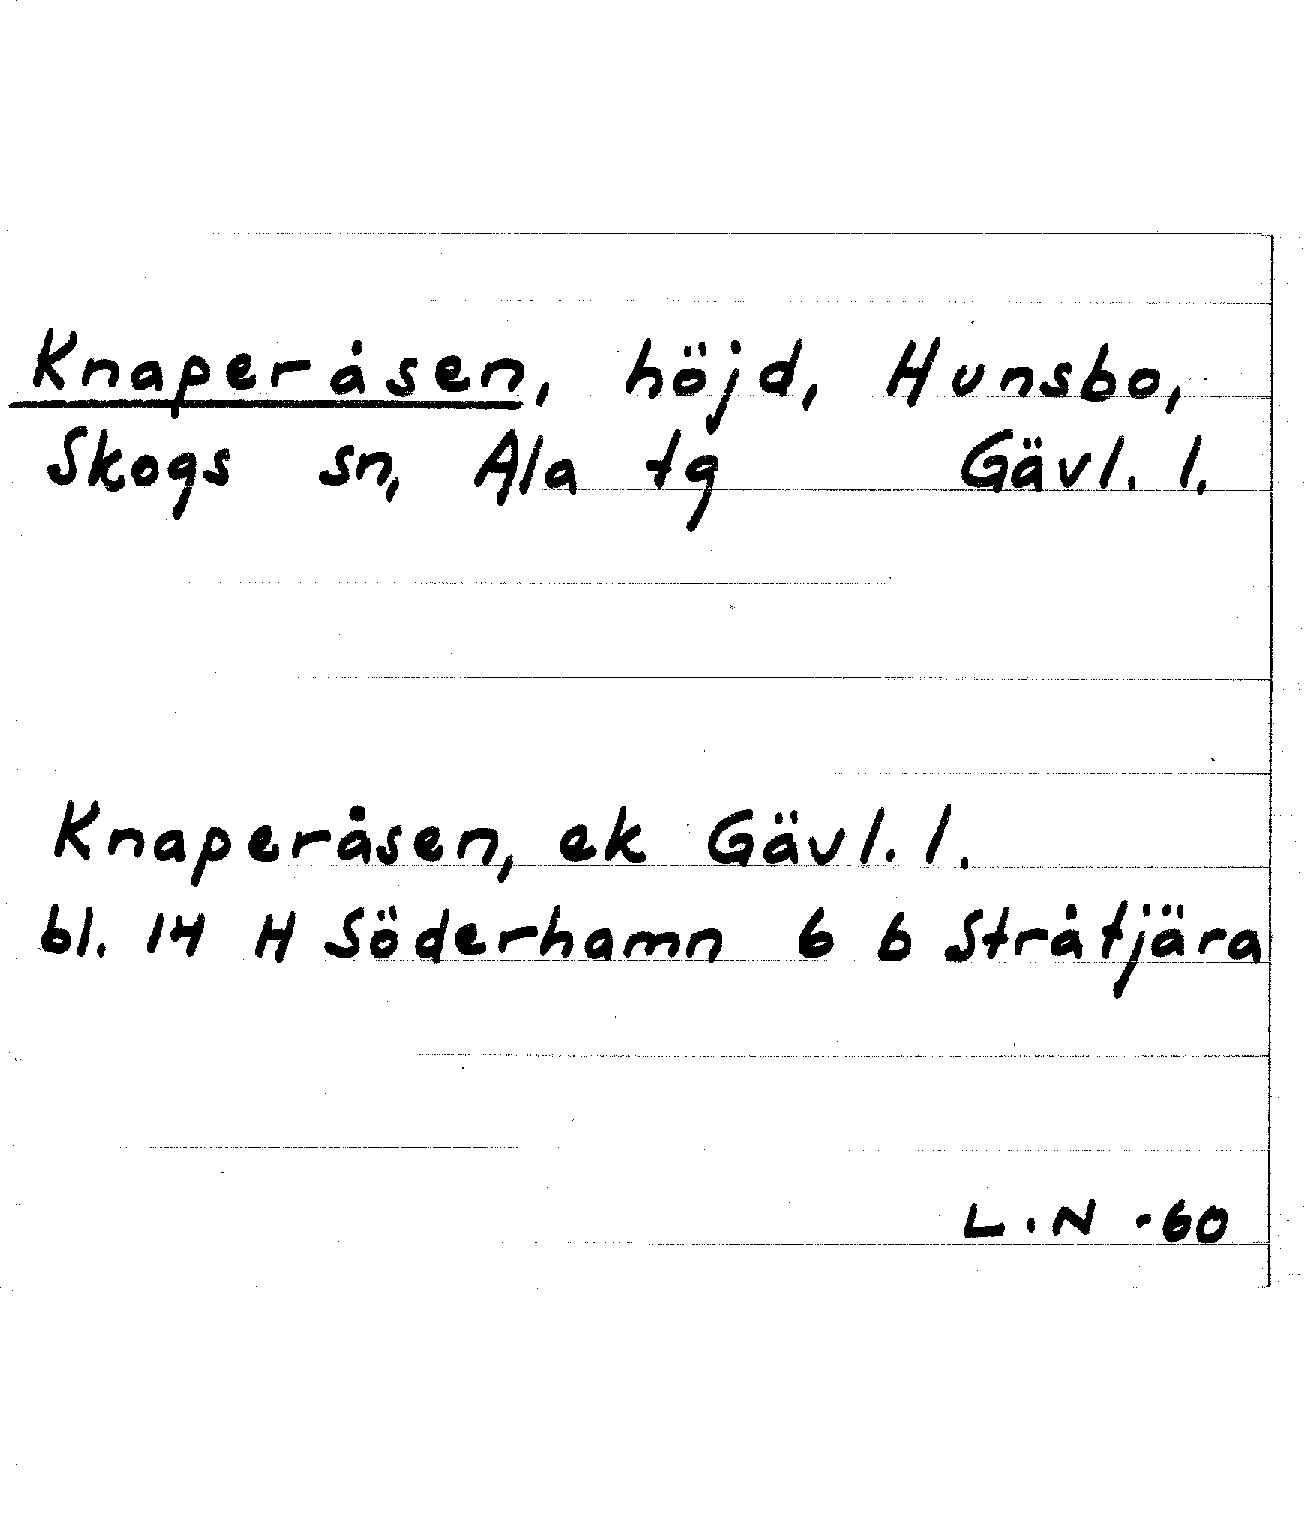 Knaperåsen, höjd, Hunsbo,
Skogs sn, Ala tg Gävl. l.
Knaperåsen, ek Gävl. l.
bl. 14 H Söderhamn 6 b Stråtjära
L.N -60